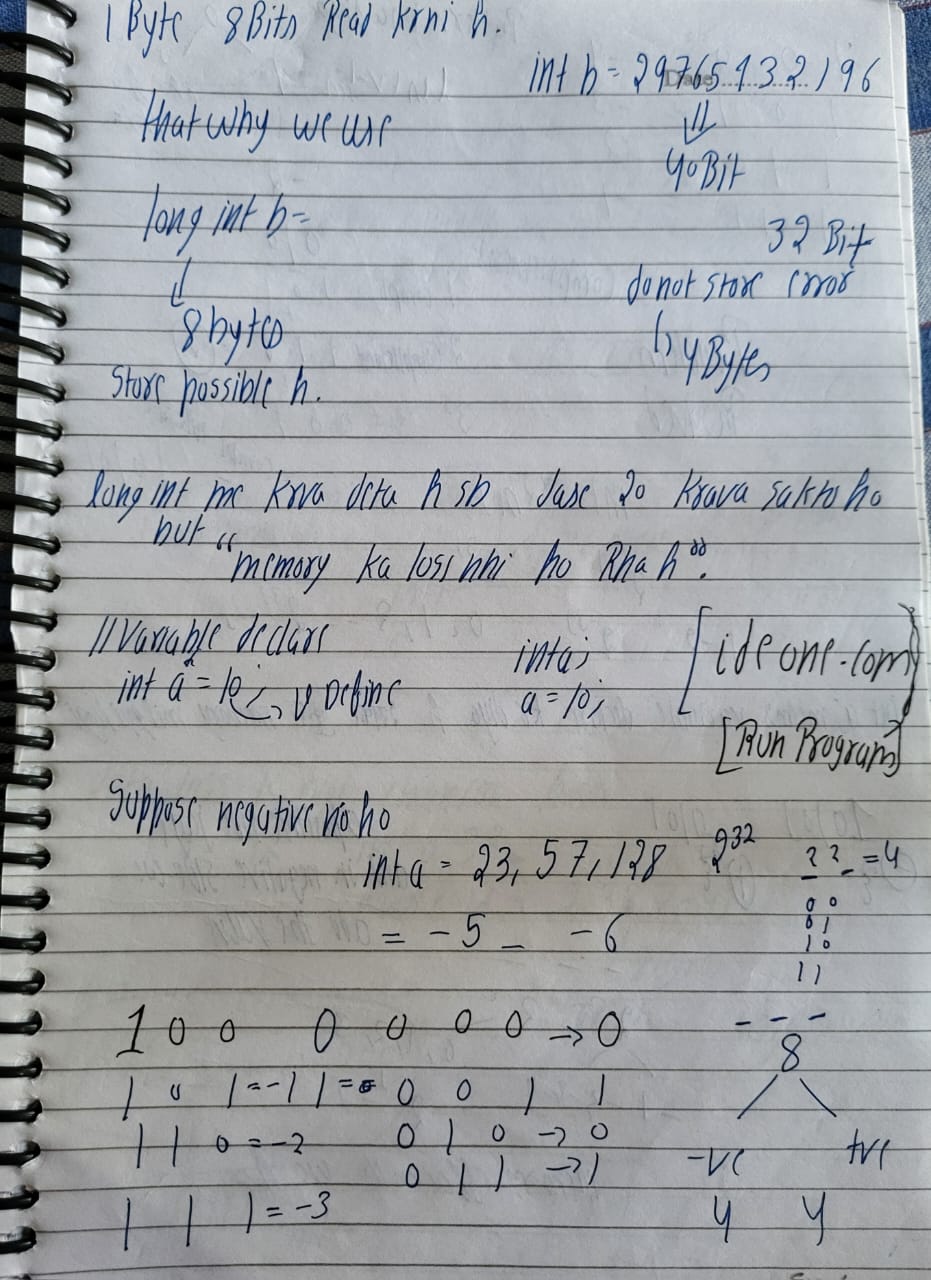 1 Byte 8 Bits Read krni h.
int b = 29765132196
that why we use
⇓
40 Bit
long int b=
32 Bit
↓
do not store error
8 bytes
↳ 4 Bytes
Store possible h.
long int me krva deta h sb
20 krava sakto ho
but "memory ka loss nhi ho Rha h".
//Variable declare
int a = 10; Define
int a;
a = 10;
[ideone.com]
[Run Program]
Suppose negative no ho
int a = 23,57,128
2 2 = 4
= -5 -6
0 0
0 1
1 0
1 1
- - -
8
-ve +ve
4 4
1 0 0 0 0 0 0 → 0
1 0 1 = -1
0 0 1 1
1 1 0 = -2 0 1 0 → 0
0 1 1 → 1
1 1 1 = -3